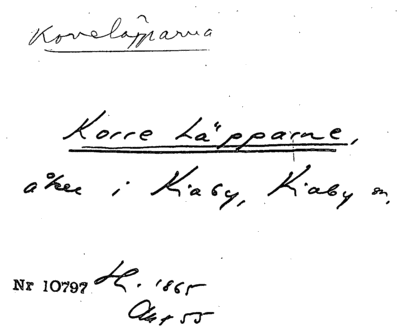 Korreläpparna
Korre Läpparne,
åker i Kiaby, Kiaby sn.
Nr 10797 H. 1865
Akt 55